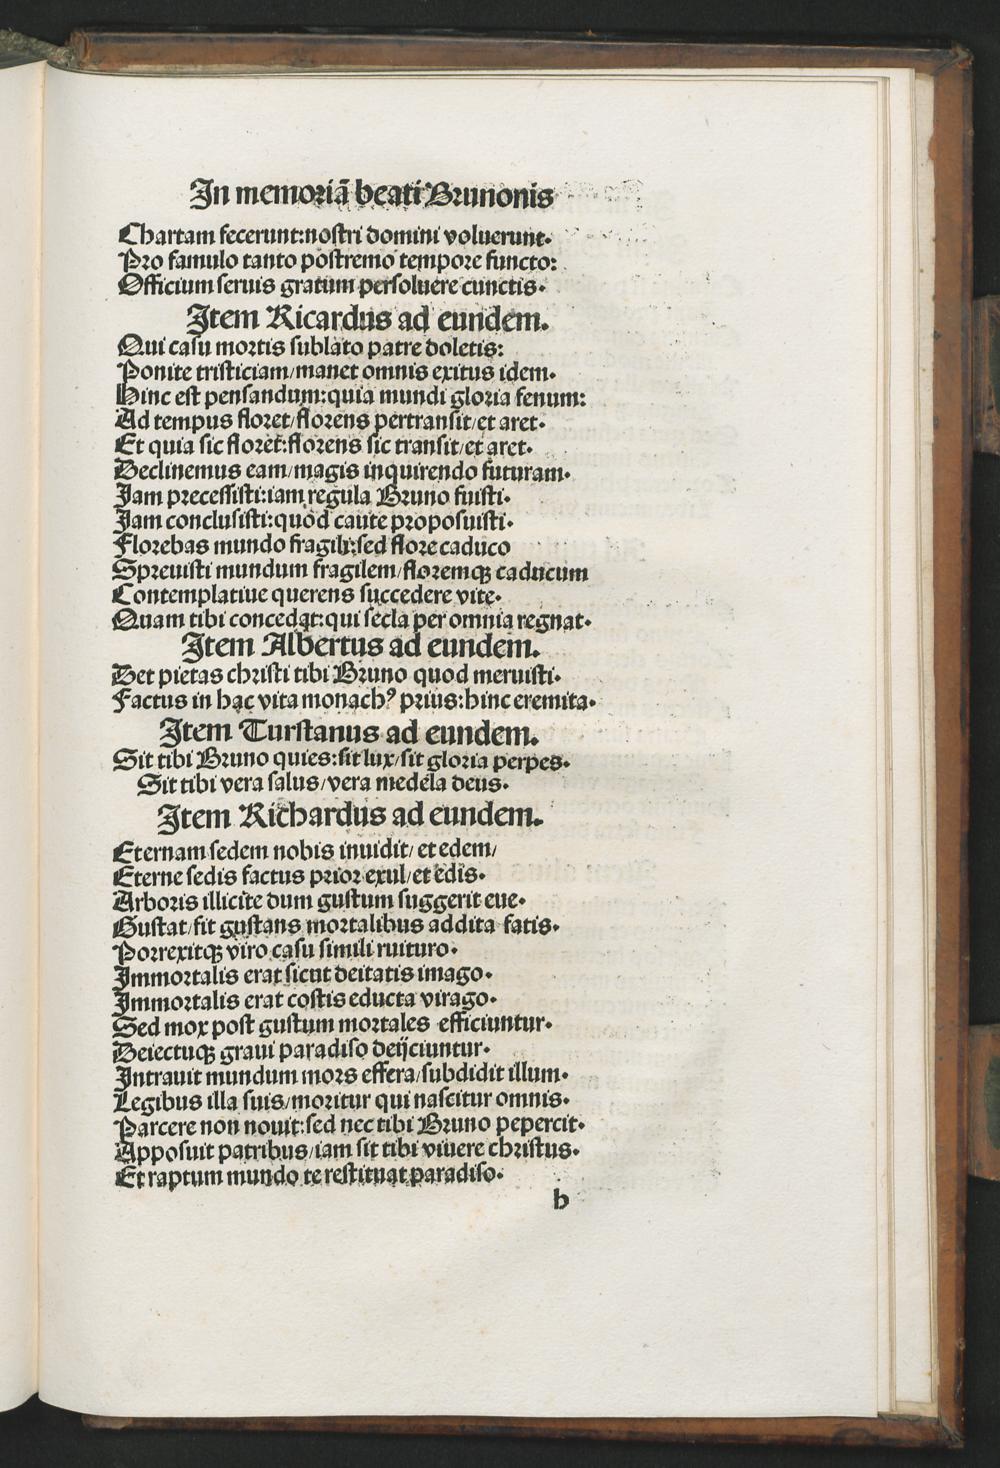 In memoriā beati Brunonis
Chartam fecerunt:nostri domini voluerunt.
Pro famulo tanto postremo tempore functo:
Officium seruis gratum persoluere cunctis.
Item Ricardus ad eundem.
Qui casu mortis sublato patre doletis:
Ponite tristiciam/manet omnis exitus idem.
Hinc est pensandum:quia mundi gloria fenum:
Ad tempus floret/florens pertransit/et aret.
Et quia sic floret:florens sic transit/et aret.
Declinemus eam/magis inquirendo futuram.
Jam precessisti:iam regula Bruno fuisti.
Jam conclusisti:quod caute proposuisti.
Florebas mundo fragili:sed flore caduco
Spreuisti mundum fragilem/floremqꝫ caducum
Contemplatiue querens succedere vite.
Quam tibi concedat:qui secla per omnia regnat.
Item Albertus ad eundem.
Det pietas christi tibi Bruno quod meruisti.
Factus in hac vita monachꝰ prius:hinc eremita.
Item Turstanus ad eundem.
Sit tibi Bruno quies:sit lux/sit gloria perpes.
Sit tibi vera salus/vera medela deus.
Item Richardus ad eundem.
Eternam sedem nobis inuidit/et edem/
Eterne sedis factus prior exul/et edis.
Arboris illicite dum gustum suggerit eue.
Gustat/fit gustans mortalibus addita fatis.
Porrexitqꝫ viro casu simili ruituro.
Immortalis erat sicut deitatis imago.
Immortalis erat costis educta virago.
Sed mox post gustum mortales efficiuntur.
Deiectuqꝫ graui paradiso deijciuntur.
Intrauit mundum mors effera/subdidit illum.
Legibus illa suis/moritur qui nascitur omnis.
Parcere non nouit:sed nec tibi Bruno pepercit.
Apposuit patribus/iam sit tibi viuere christus.
Et raptum mundo te restituat paradiso.
b